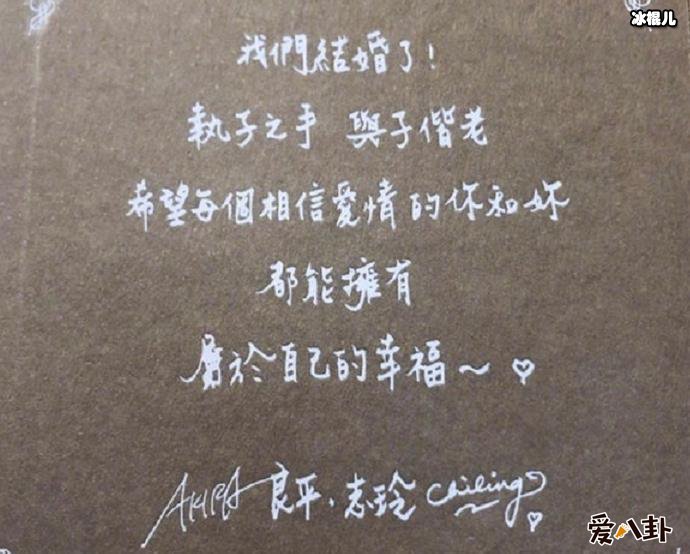 冰棍儿
我們結婚了!
執子之手 與子偕老
希望每個相信愛情的你和妳
都能擁有
屬於自己的幸福~♡
AKIRA 良平、志玲 Chiling♡
爱八卦